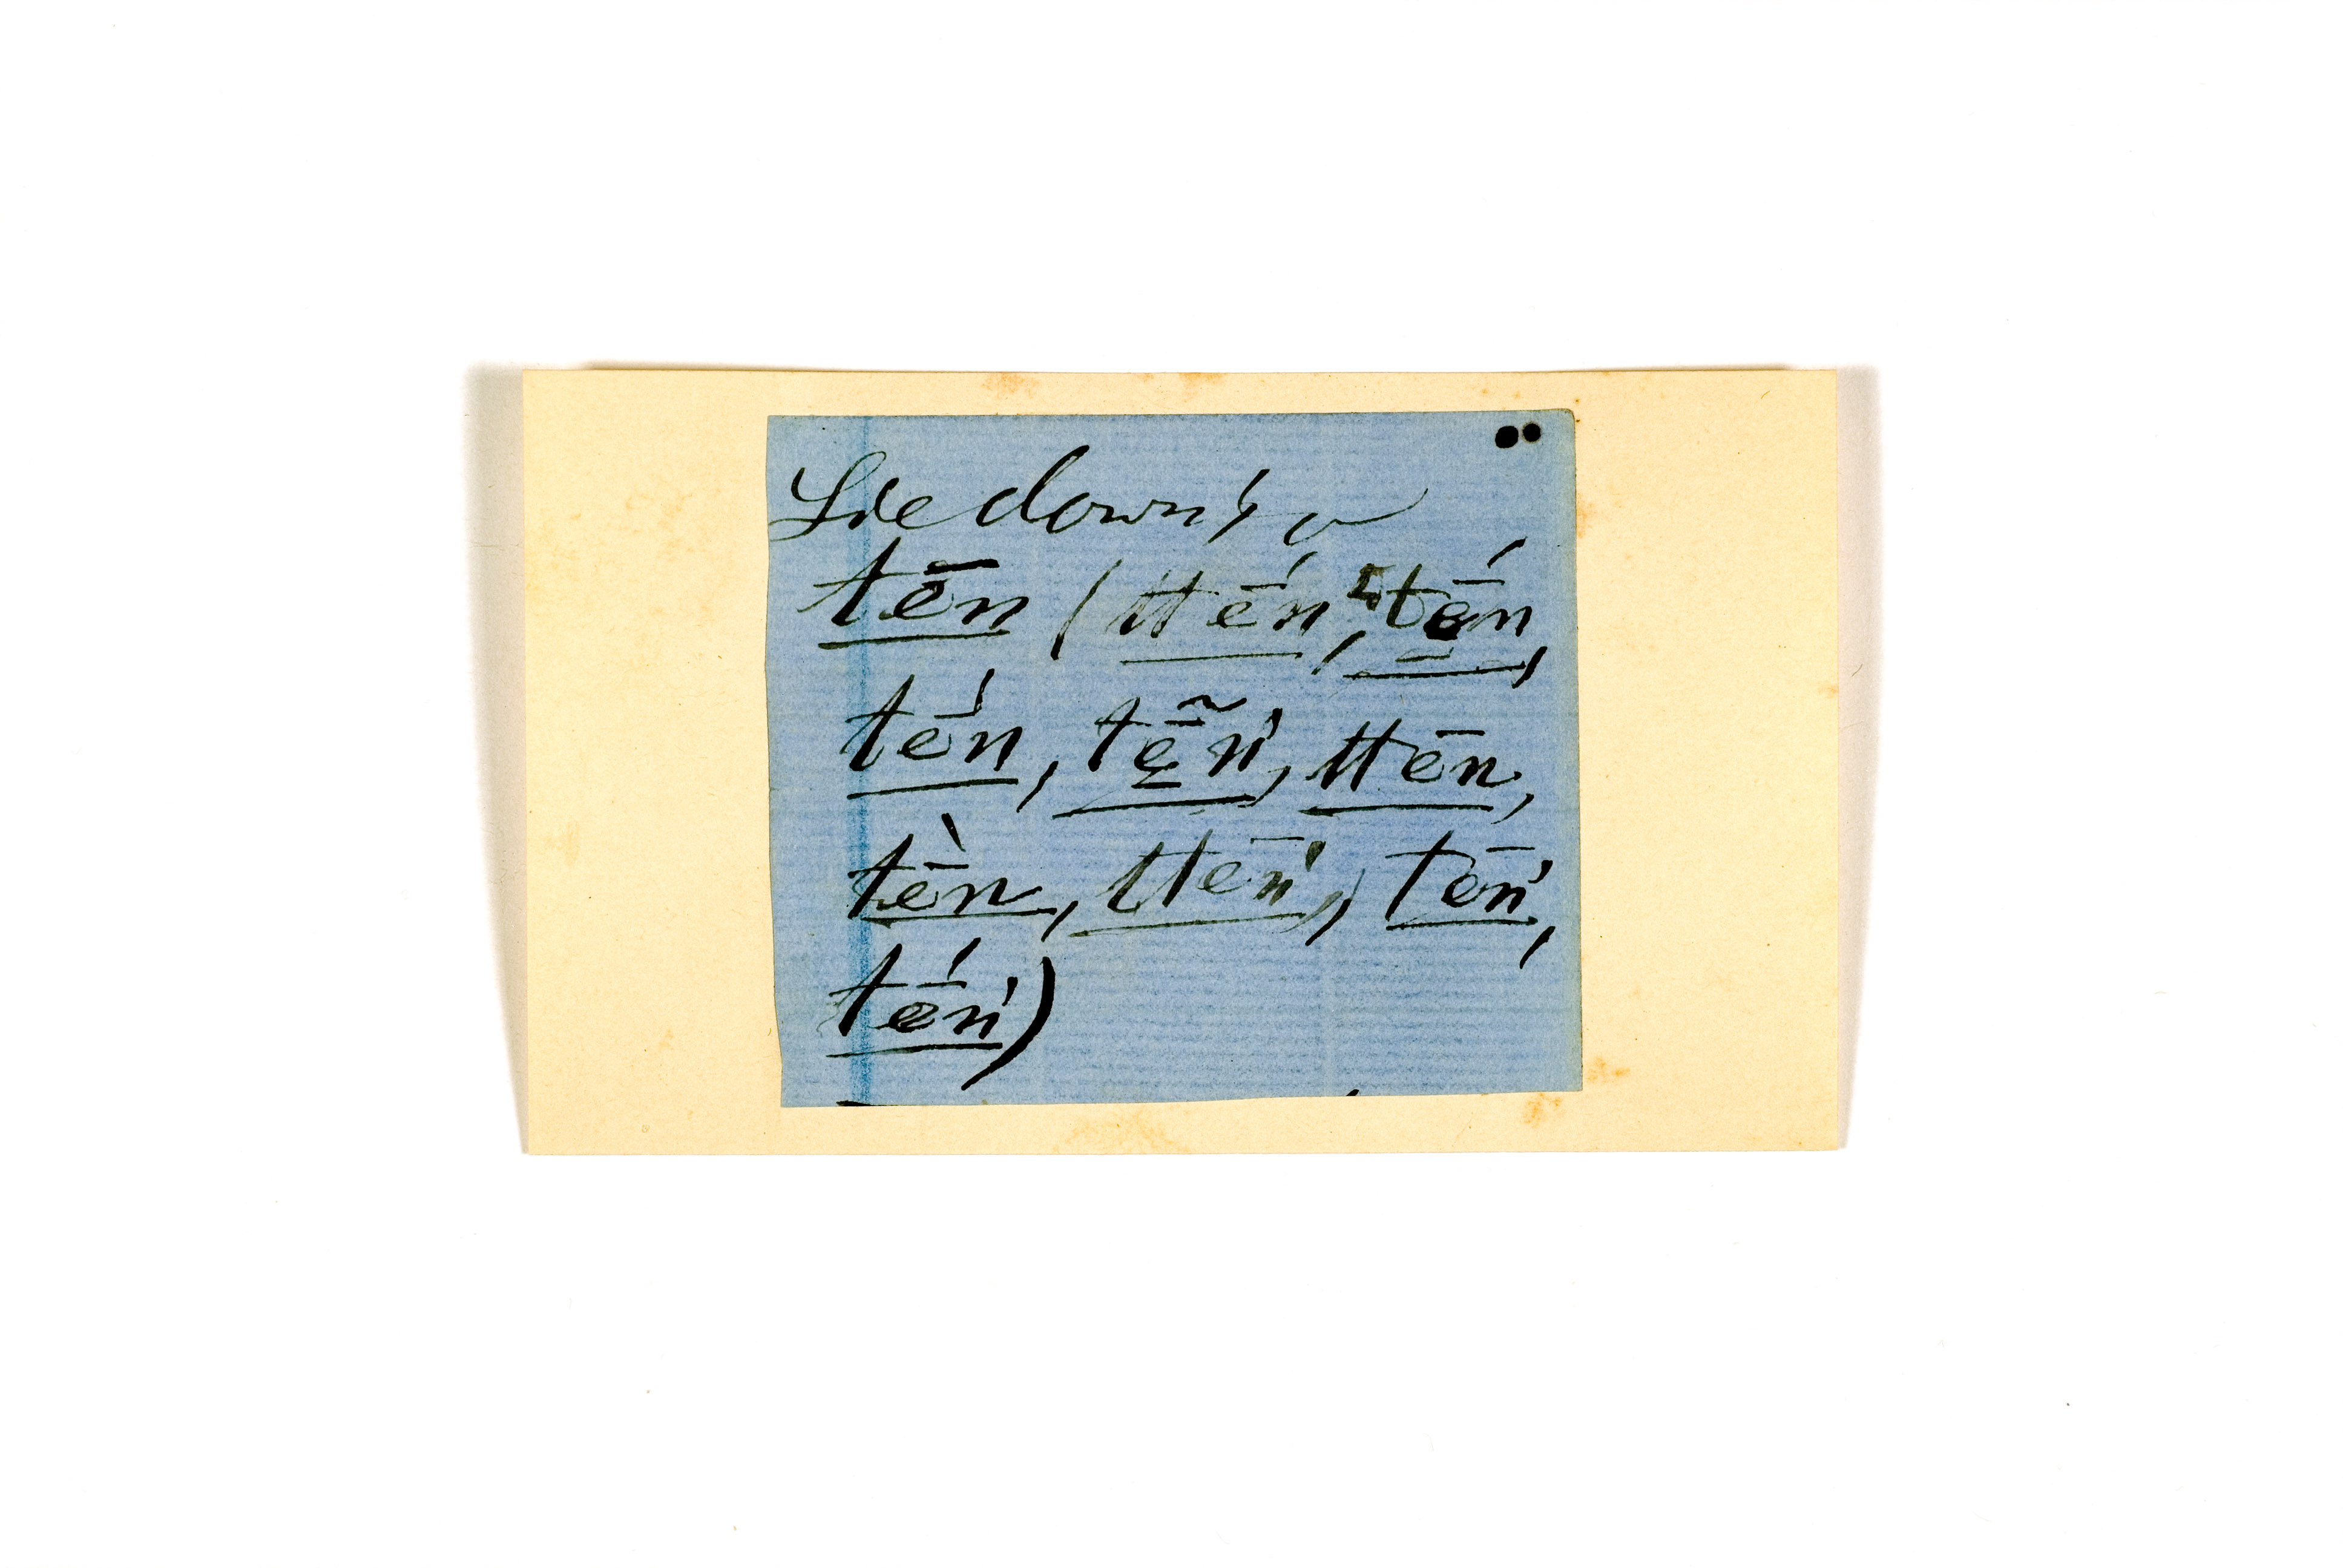 Lie down, v
tēn (ttḗn, tḗ̠n,
tḗn, tē̠̃n̍, ttēn,
tḕn, ttēn̍, tēn̍,
tḗn̍)